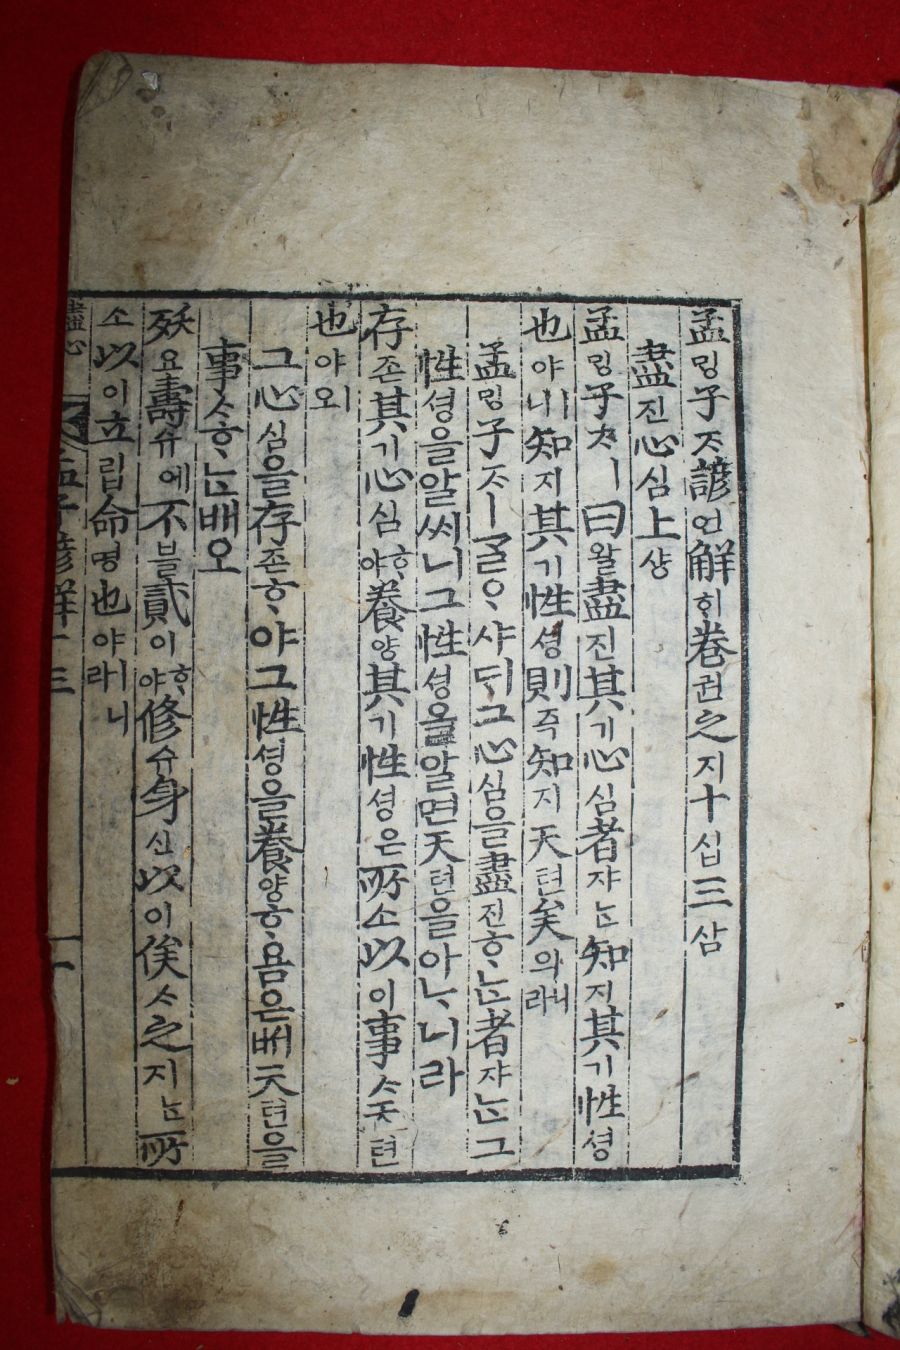 孟밍子ᄌᆞ諺언解ᄒᆡ卷권之지十십三삼
盡진心심上샹
孟밍子ᄌᆞㅣ曰왈盡진其기心심者쟈ᄂᆞᆫ知지其기性셩
也야ㅣ니知지其기性셩則즉知지天텬矣의니라
孟밍子ᄌᆞㅣᄀᆞᆯᄋᆞ샤ᄃᆡ그心심을盡진ᄒᆞᄂᆞᆫ者쟈ᄂᆞᆫ그
性셩을알ᄭᅵ니그性셩을알면天텬을아ᄂᆞ니라
存존其기心심ᄒᆞ야養양其기性셩은所소以이事ᄉᆞ天텬
也야ㅣ오
그心심을存존ᄒᆞ야그性셩을養양ᄒᆞ욤은ᄡᅥ天텬을
事ᄉᆞᄒᆞᄂᆞᆫ배오
殀요壽슈에不블貳이ᄒᆞ야修슈身신以이俟ᄉᆞ之지ᄂᆞᆫ所
소以이立립命명也야ㅣ니라
盡心 孟子諺解十三 一